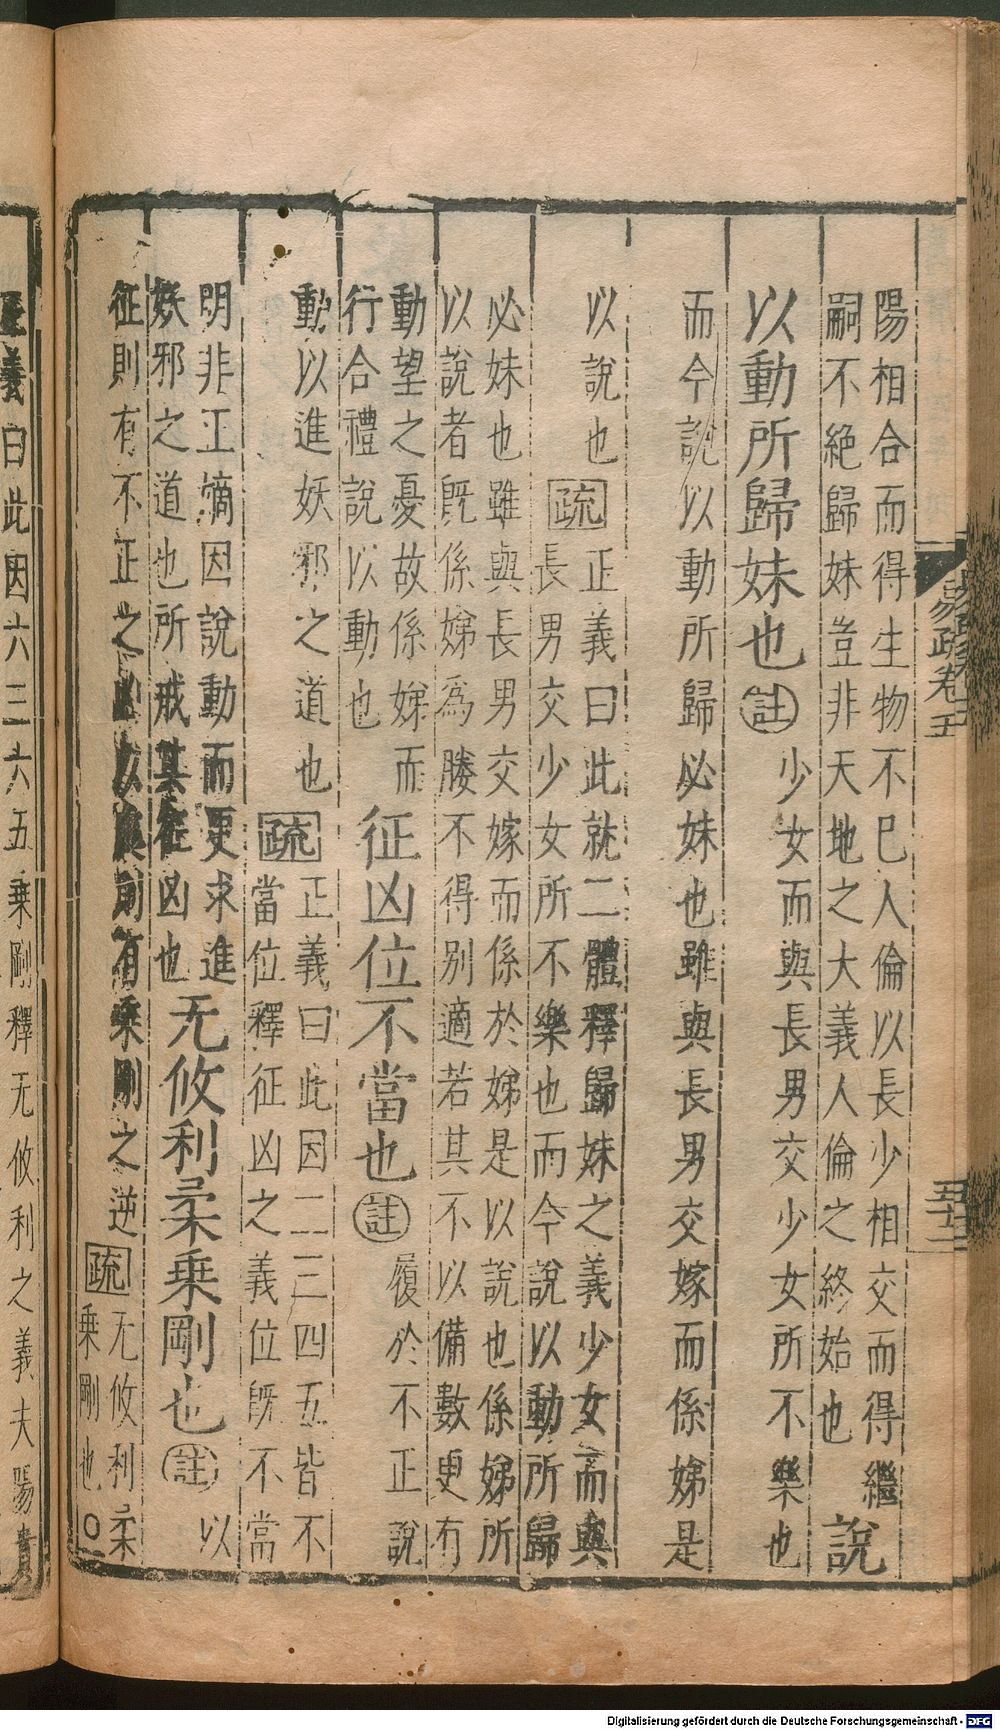 陽相合而得生物不已人倫以長少相交而得繼
嗣不絕歸妹豈非天地之大義人倫之終始也
說
以動所歸妹也
註
少女而與長男交少女所不樂也
而今說以動所歸必妹也雖與長男交嫁而係娣是
以說也
疏
正義曰此就二體釋歸妹之義少女而與
長男交少女所不樂也而今說以動所歸
必妹也雖與長男交嫁而係於娣是以說也係娣所
以說者既係娣為媵不得別適若其不以備數更有
動望之憂故係娣而
行合禮說以動也
征凶位不當也
註
履於不正說
動以進妖邪之道也
疏
正義曰此因二三四五皆不
當位釋征凶之義位既不當
明非正嫡因說動而更求進
妖邪之道也所戒其在征凶也
无攸利柔乘剛也
註
以
征則有不正之凶以處則有乘剛之逆
疏
无攸利柔
乘剛也○
正義曰此因六三六五乘剛釋无攸利之義夫陽貴
易疏卷五
五十二
Digitalisierung gefördert durch die Deutsche Forschungsgemeinschaft - DFG